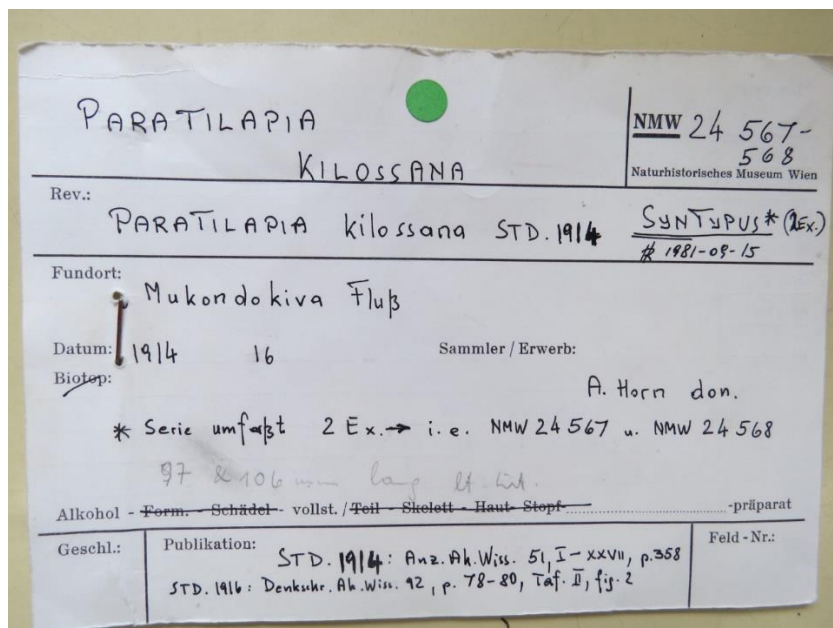 PARATILAPIA
KILOSSANA
NMW 24 567-
568
Naturhistorisches Museum Wien
Rev.:
PARATILAPIA kilossana STD. 1914 SYNTYPUS* (2Ex.)
1981-09-15
Fundort:
Mukondokiva Fluß
Datum: 1914 16 Sammler / Erwerb:
Biotop:
A. Horn don.
* Serie umfaßt 2 Ex. → i.e. NMW 24 567 u. NMW 24 568
97 & 106 mm lang lt. Lit.
Alkohol - Form. - Schädel - vollst. / Teil - Skelett - Haut - Stopf- -präparat
Geschl.: Publikation: Feld - Nr.:
STD. 1914: Anz. Ak. Wiss. 51, I-XXVII, p.358
STD. 1916: Denkschr. Ak. Wiss. 92, p. 78-80, Taf. II, fig. 2